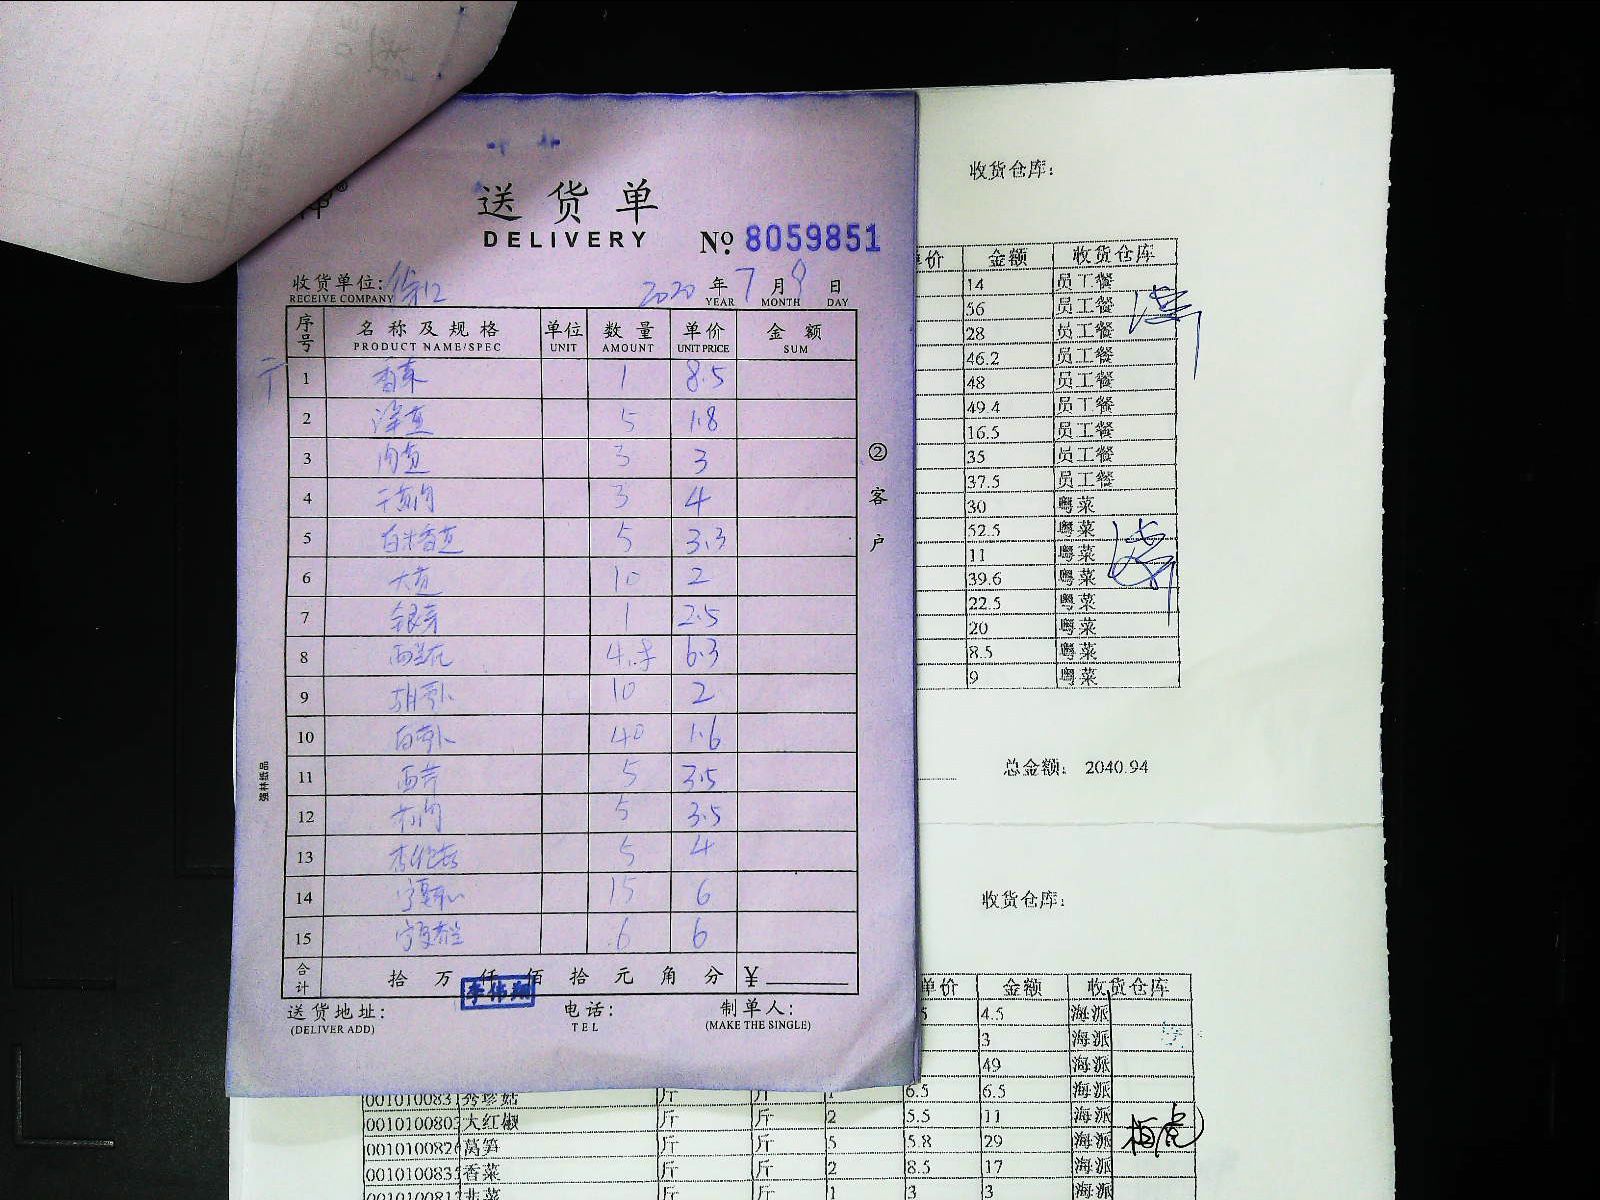 送货单
DELIVERY
№ 8059851
收货单位: 2020 年 7 月 9 日
RECEIVE COMPANY YEAR MONTH DAY
序号 名称及规格 单位 数量 单价 金额
PRODUCT NAME/SPEC UNIT AMOUNT UNIT PRICE SUM
1 香菜 1 8.5
2 洋芋 5 1.8
3 3 3
4 3 4
5 5 3.3
6 大 10 2
7 银芽 1 2.5
8 西兰花 6.3
9 胡萝卜 10 2
10 白萝卜 40 1.6
11 西芹 5 3.5
12 5 3.5
13 杏鲍菇 5 4
14 宁夏菜心 15 6
15 宁夏芥兰 6 6
合计 拾 万 仟 佰 拾 元 角 分 ¥
李伟翔
送货地址: 电话: 制单人:
(DELIVER ADD) TEL (MAKE THE SINGLE)
②客户
强林纸品
收货仓库:
价 金额 收货仓库
14 员工餐
56 员工餐
28 员工餐
46.2 员工餐
48 员工餐
49.4 员工餐
16.5 员工餐
35 员工餐
37.5 员工餐
30 粤菜
52.5 粤菜
11 粤菜
39.6 粤菜
22.5 粤菜
20 粤菜
8.5 粤菜
9 粤菜
总金额: 2040.94
收货仓库:
单价 金额 收货仓库
5 4.5 海派
3 海派
49 海派
001010083 秀珍菇 斤 斤 1 6.5 6.5 海派
001010080 大红椒 斤 斤 2 5.5 11 海派
001010082 莴笋 斤 斤 5 5.8 29 海派
001010083 香菜 斤 斤 2 8.5 17 海派
001010081 韭菜 斤 斤 1 3 3 海派